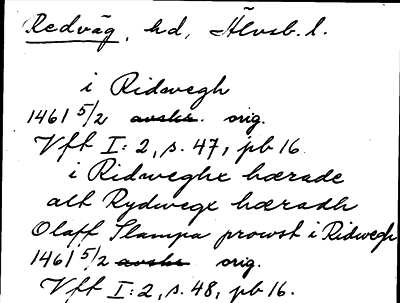 Redväg, hd, Älvsb. l.
i Ridwegh
1461 5/2 avskr. orig.
Vft I: 2, s. 47, pb 16.
i Ridweghe hærade
alt Rydwegx hæradh
Olaff Slampa prowst i Ridwegh
1461 5/2 avskr. orig.
Vft I: 2, s. 48, pb 16.